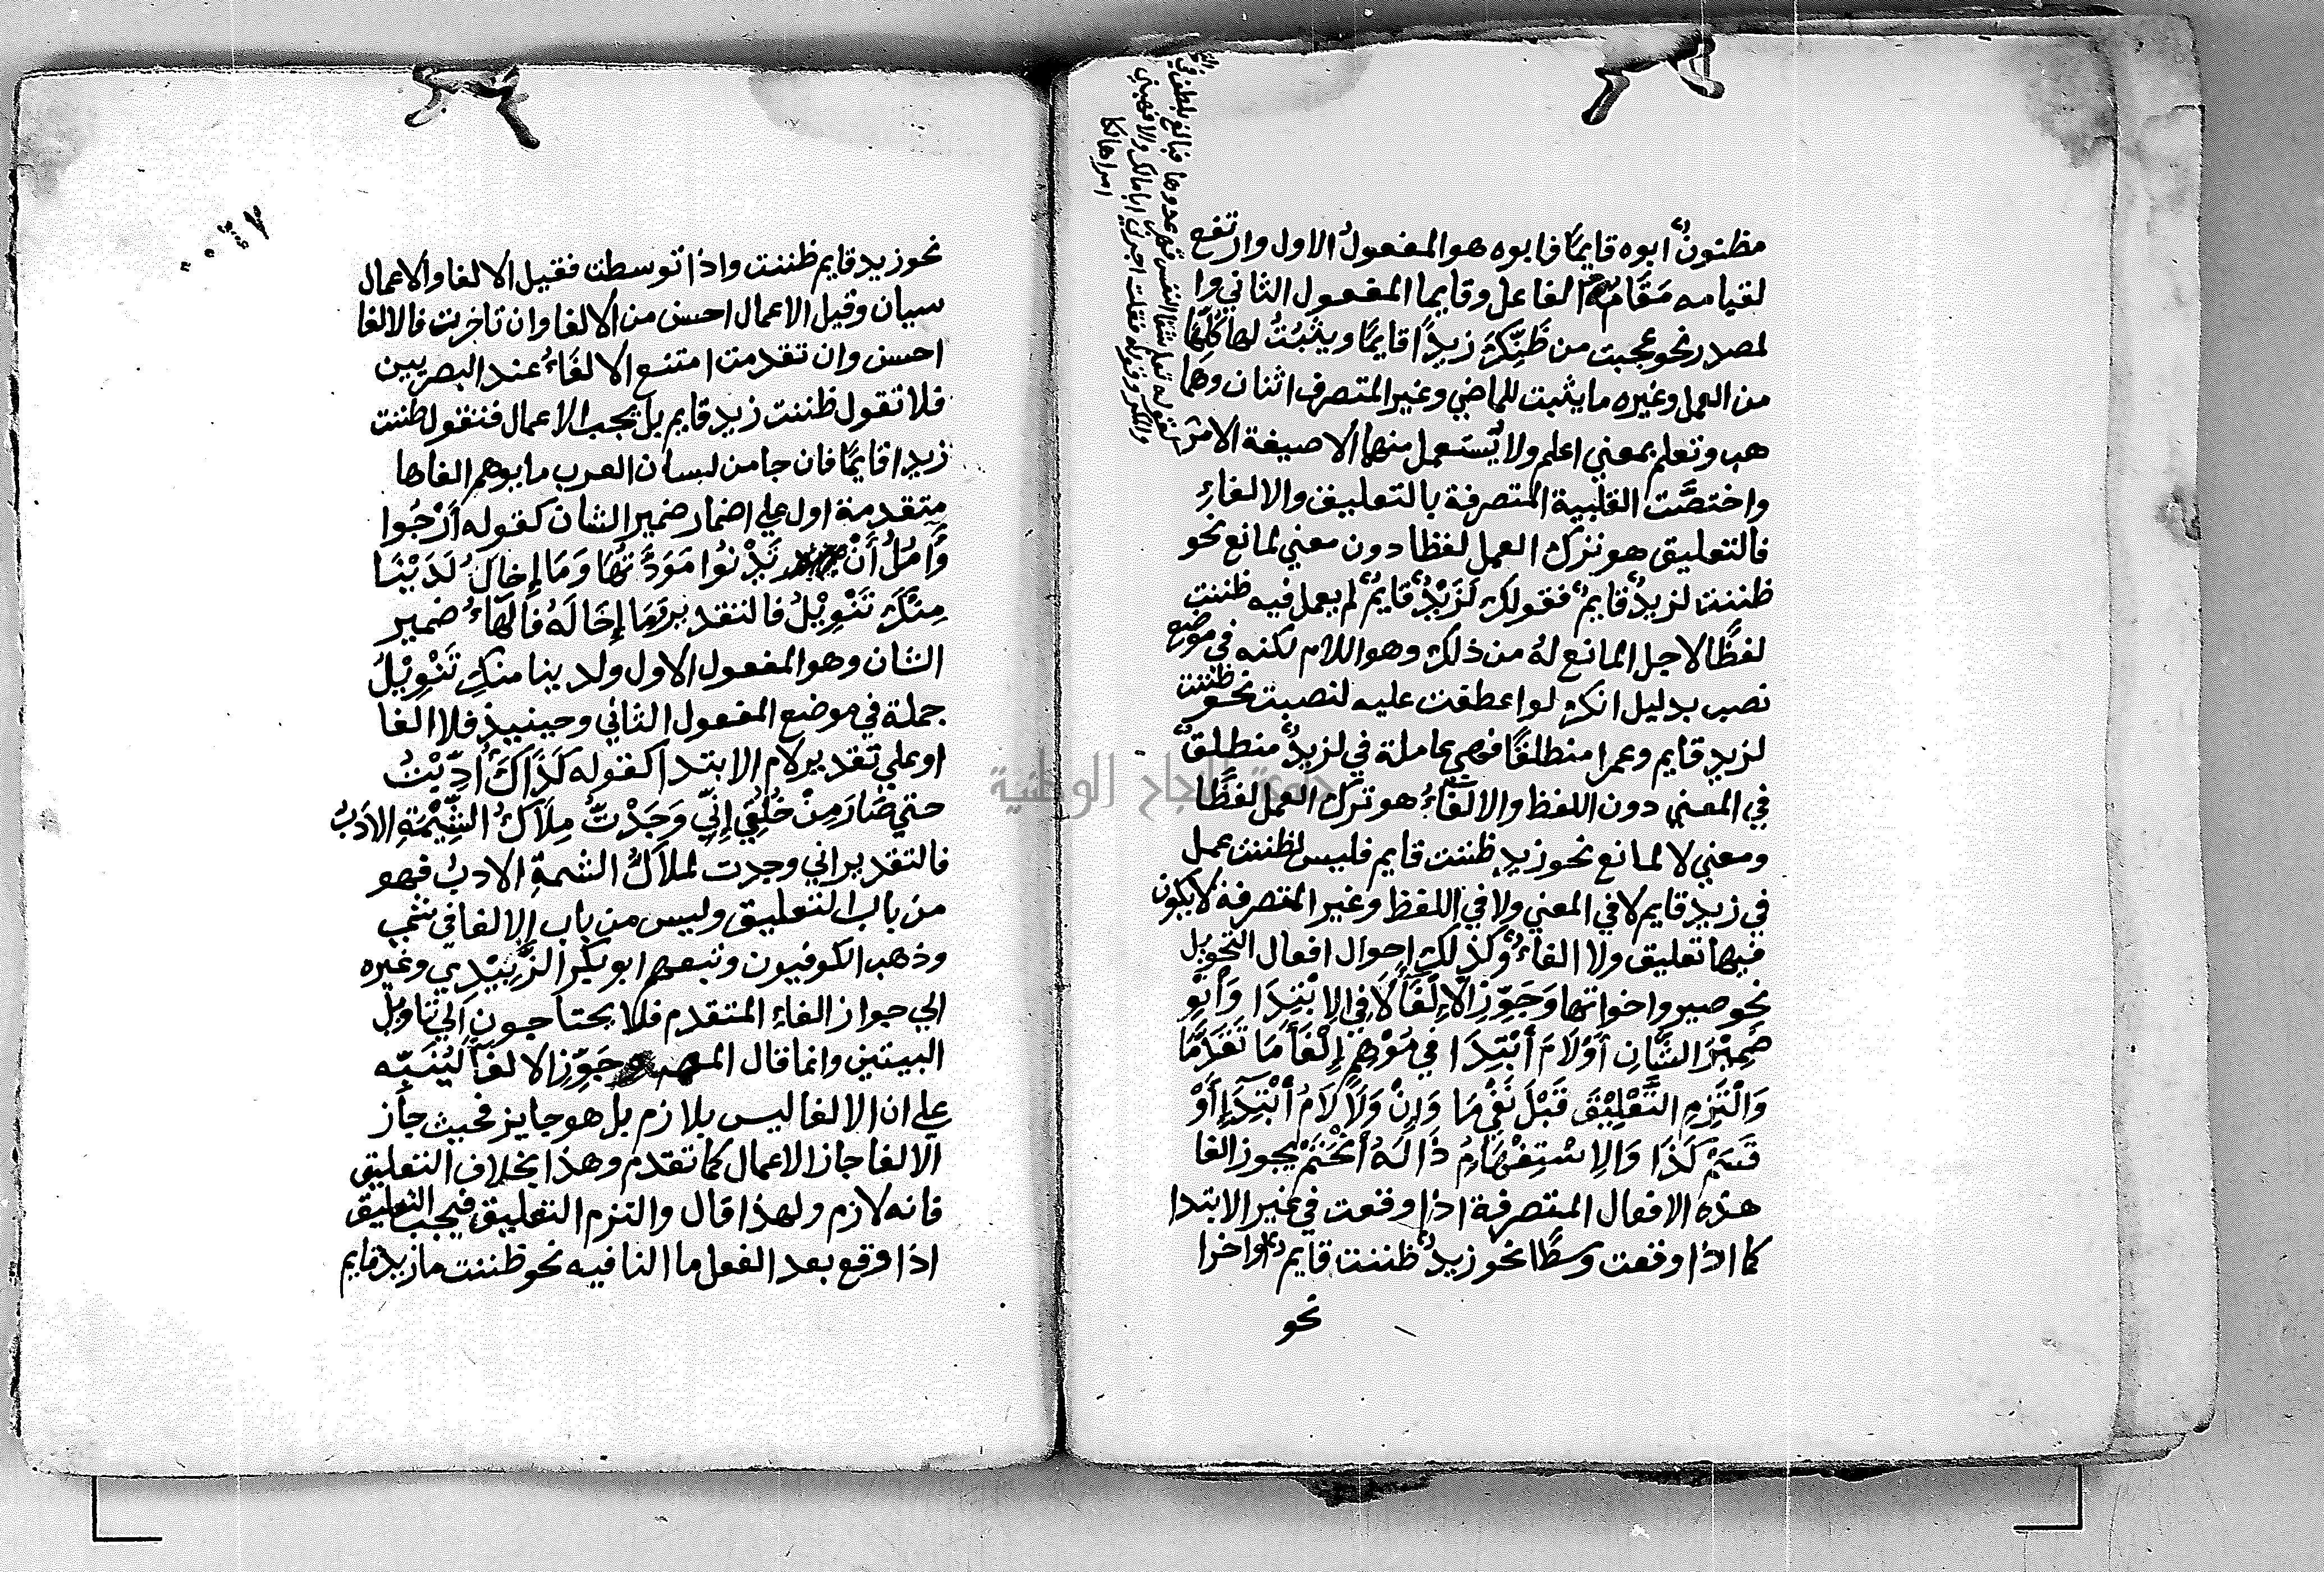 مظنونٌ ابوه قايمًا فابوه هو المفعولُ الاول وارتفع
لقيامه مَقَامَ الفاعل وقايما المفعول الثاني وا
لمصدر نحو عجبت من ظَنِّكَ زيدًا قايمًا ويثبُتُ لها كُلِّهَا
من العمل وغيره ما يثبت للماضي وغير المتصرف اثنان وهما
هب وتعلم بمعني اعلم ولا يُستعمل منهما الا صيغة الامر
كقوله تعلم شفا النفس قهر عدوها فبالغ بلطف في
وكقوله فقلت اجرني ابا مالك والا فهبني
امرا هالكا
واختصَّت القلبية المتصرفة بالتعليق والالغاءِ
فالتعليق هو ترك العمل لفظا دون معني لمانع نحو
ظننت لزيدٌ قايمٌ فقولك لَزَيْدٌ قايمٌ لم يعمل فيه ظننت
لفظًا لاجل المانع لهُ من ذلك وهو اللام لكنه في موضع
نصب بدليل انك لو اعطفت عليه لنصبت نحو ظننت
لزيد قايم وعمرا منطلقًا فهي عاملة في لزيدٌ منطلقٌ
في المعني دون اللفظ والالغاءُ هو ترك العمل لفظًا
ومعني لا لمانع نحو زيد ظننت قايم فليس لظننت عمل
في زيد قايم لا في المعني ولا في اللفظ وغير المتصرفة لا يكون
فيها تعليق ولا الغاءٌ وكذلك احوال افعال التحويل
نحو صير واخواتها وَجَوِّزِ الاِلْغَآ لَا فِي الاِبْتِدَا وَانْوِ
ضَمِيْرَ الشَّانِ أَوْ لَامَ ابْتِدَا فِي مُوْهِمٍ اِلْغَآ مَا تَقَدَّمَا
وَالْتَزِمِ التَّعْلِيْقَ قَبْلَ نَفْيِ مَا وَاِنْ وَلَا لَامُ ابْتِدَآءٍ اَوْ
قَسَمْ كَذَا وَالِاسْتِفْهَامُ ذَا لَهُ انْحَتَمْ يجوز الغا
هذه الافعال المتصرفة اذا وقعت في غير الابتدا
كما اذا وقعت وسطًا نحو زيدٌ ظننت قايمٌ واخرا
نحو
نحو زيد قايم ظننت واذا توسطت فقيل الالغا والاعمال
سيان وقيل الاعمال احسن من الالغا وان تاخرت فالالغا
احسن وان تقدمت امتنع الالغَاءُ عند البصريين
فلا تقول ظننت زيد قايم بل يجب الاعمال فتقول ظننت
زيدا قايمًا فان جا من لسان العرب ما يوهم الغاها
متقدمة اول علي اضمار ضمير الشان كقوله أَرْجُوا
وَآمُلُ أَنْ تَدْنُوا مَوَدَّتُهَا وَمَا إِخَالُ لَدَيْنَا
مِنْكَ تَنْوِيْلُ فالتقدير مَا إِخَالَهُ فَالهَاءُ ضمير
الشان وهو المفعول الاول ولدينا منكِ تَنْوِيْلُ
جملة في موضع المفعول الثاني وحينيذ فلا الغا
او علي تقدير لام الابتدا كقوله كَذَاكَ أُدِّبْتُ
حتي صَارَ مِنْ خُلُقِي إِنِّي وَجَدْتُ مِلَاكُ الشِّيْمَةِ الاَدَبُ
فالتقدير اني وجدت لملاكُ الشمةِ الادبُ فهو
من باب التعليق وليس من باب الالغا في شي
وذهب الكوفيون وتبعهم ابو بكر الزُّبَيْدي وغيره
الي جواز الغاءِ المتقدم فلا يحتاجون الي تاويل
البيتين وانما قال المص وجَوِّزِ الالغآ ليُنَبِّه
علي ان الالغا ليس بلازم بل هو جايز فحيث جاز
الالغا جاز الاعمال كما تقدم وهذا بخلاف التعليق
فانه لازم ولهذا قال والتزم التعليق فيجب التعليق
اذا وقع بعد الفعل ما النافيه نحو ظننت ما زيد قايم
جامعة النجاح الوطنية